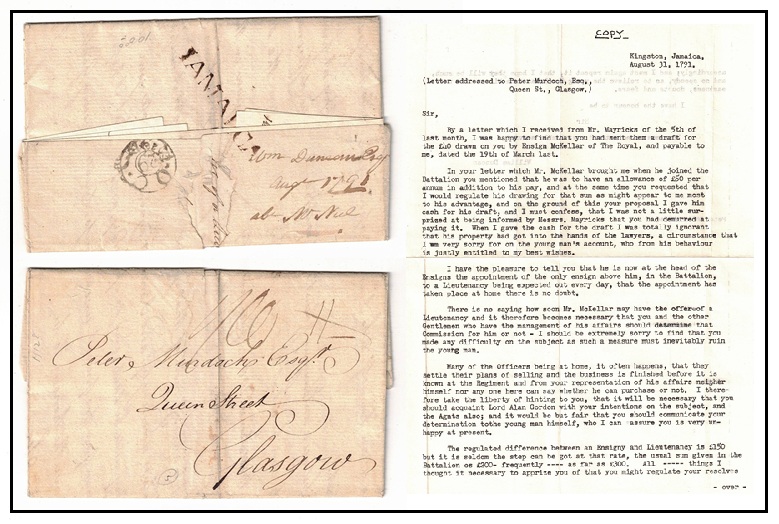 JAMAICA
Wm Duncan Esqr
Augt 1791
ab Mr Neil
Peter Murdoch Esqr.
Queen Street
Glasgow
COPY
Kingston, Jamaica.
August 31, 1791.
(Letter addressed to Peter Murdoch, Esq.,
Queen St., Glasgow.)
Sir,
By a letter which I received from Mr. Mayricks of the 5th of
last month, I was happy to find that you had sent them a draft for
the £20 drawn on you by Ensign McKellar of The Royal, and payable to
me, dated the 19th of March last.
In your letter which Mr. McKellar brought me when he joined the
Battalion you mentioned that he was to have an allowance of £50 per
annum in addition to his pay, and at the same time you requested that
I would regulate his drawing for that sum as might appear to me most
to his advantage, and on the ground of this your proposal I gave him
cash for his draft, and I must confess, that I was not a little sur-
prized at being informed by Messrs. Mayricks that you had demurred at
paying it. When I gave the cash for the draft I was totally ignorant
that his property had got into the hands of the lawyers, a circumstance that
I was very sorry for on the young man's account, who from his behaviour
is justly entitled to my best wishes.
I have the pleasure to tell you that he is now at the head of the
Ensigns the appointment of the only ensign above him, in the Battalion,
to a Lieutenancy being expected out every day, that the appointment has
taken place at home there is no doubt.
There is no saying how soon Mr. McKellar may have the offer of a
Lieutenancy and it therefore becomes necessary that you and the other
Gentlemen who have the management of his affairs should determine that
Commission for him or not - I should be extremely sorry to find that you
made any difficulty on the subject as such a measure must inevitably ruin
the young man.
Many of the Officers being at home, it often happens, that they
settle their plans of selling and the business is finished before it is
known at the Regiment and from your representation of his affairs neigher
himself nor any one here can say whether he can purchase or not. I there-
fore take the liberty of hinting to you, that it will be necessary that you
should acquaint Lord Alan Gordon with your intentions on the subject, and
the Agats also; and it would be but fair that you should communicate your
determination tothe young man himself, who I can assure you is very un-
happy at present.
The regulated difference between an Ensigny and Lieutenancy is £150
but it is seldom the step can be got at that rate, the usual sum given in the
Battalion os £200- frequently ---- as far as £300. All ----- things I
thought it necessary to apprize of you that you might regulate your resolves
- over -